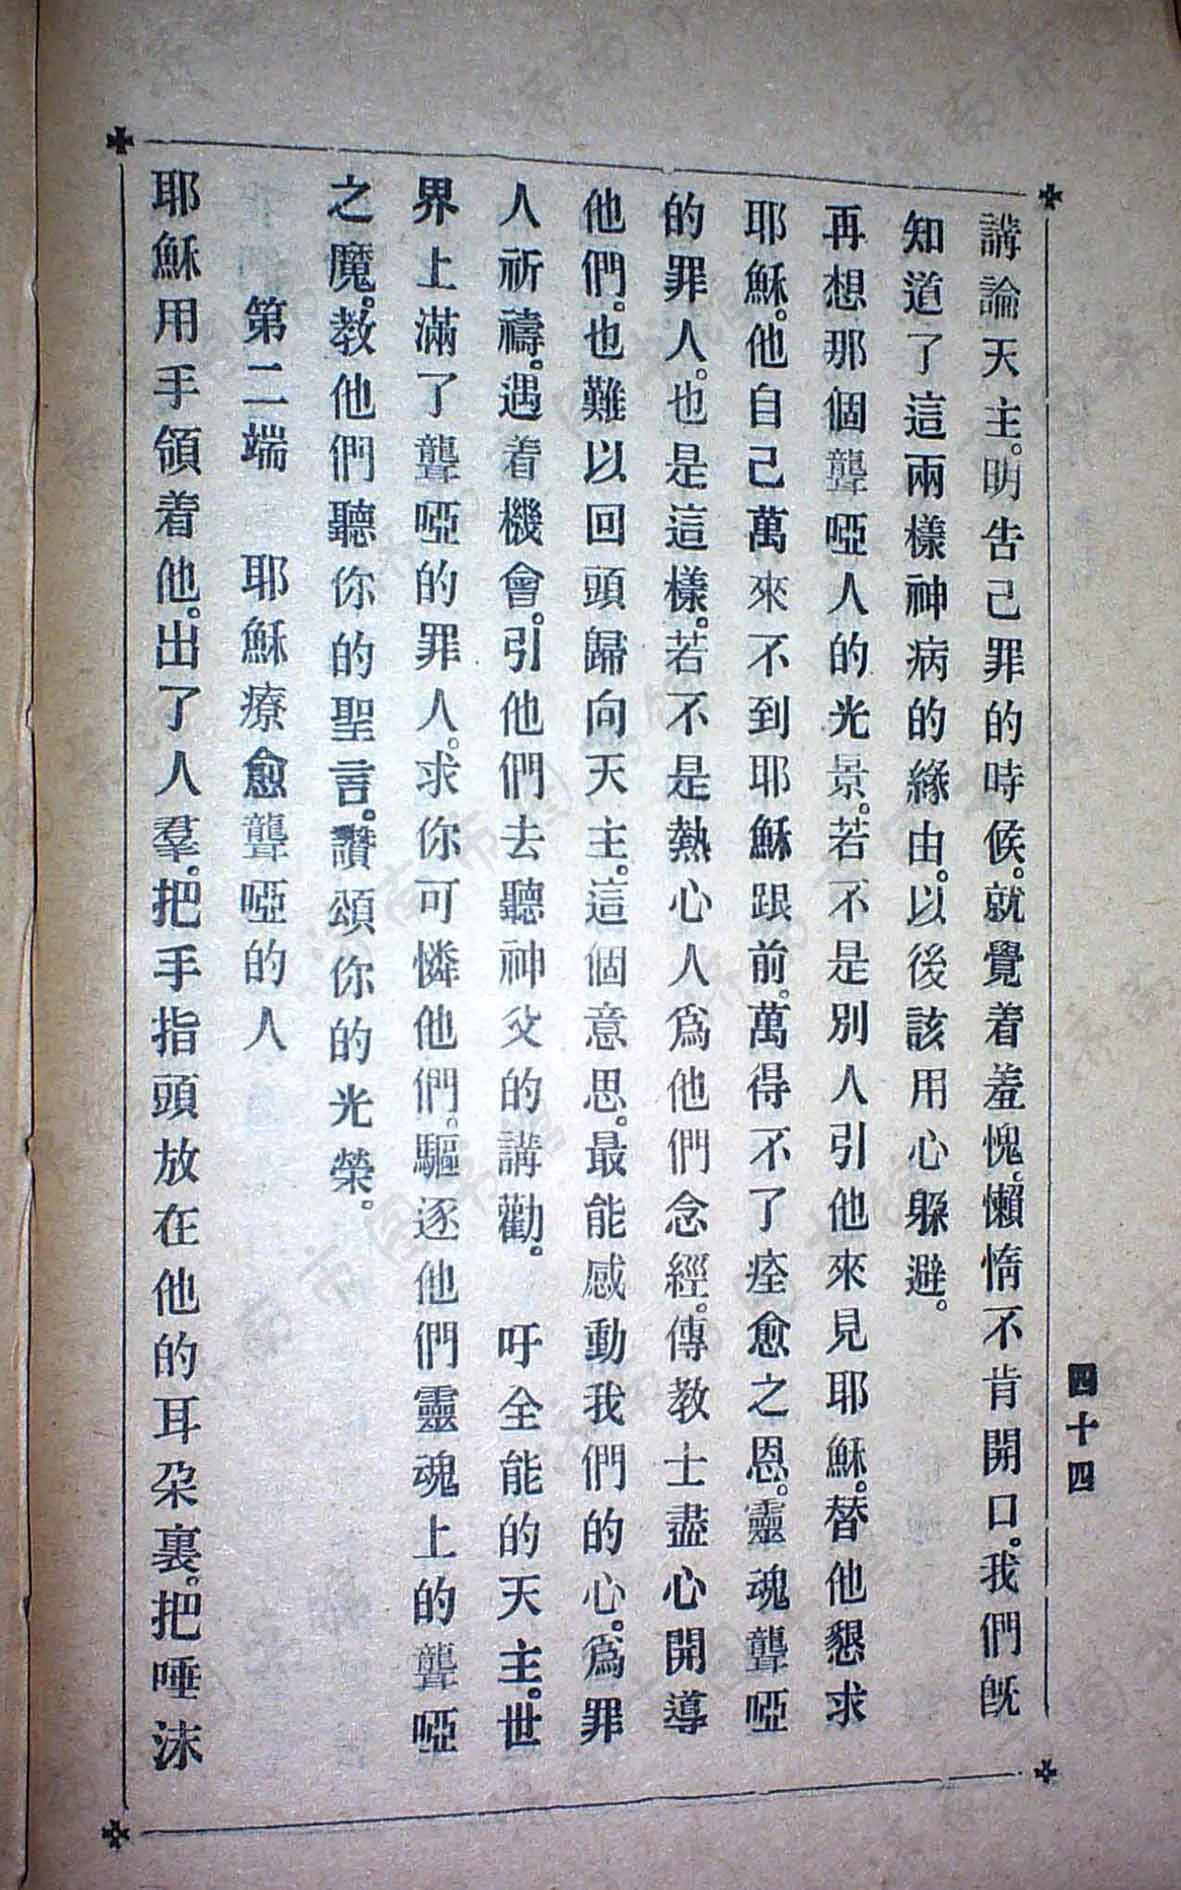 四十四
講論天主。明告己罪的時候。就覺着羞愧。懶惰不肯開口。我們旣
知道了這兩樣神病的緣由。以後該用心躱避。
再想那個聾啞人的光景。若不是別人引他來見耶穌。替他懇求
耶穌。他自己萬來不到耶穌跟前。萬得不了痊愈之恩。靈魂聾啞
的罪人。也是這樣。若不是熱心人爲他們念經。傳教士盡心開導
他們。也難以回頭歸向天主。這個意思。最能感動我們的心。爲罪
人祈禱。遇着機會。引他們去聽神父的講勸。 吁全能的天主。世
界上滿了聾啞的罪人。求你可憐他們。驅逐他們靈魂上的聾啞
之魔。教他們聽你的聖言。讚頌你的光榮。
第二端 耶穌療愈聾啞的人
耶穌用手領着他。出了人羣。把手指頭放在他的耳朶裏。把唾沫